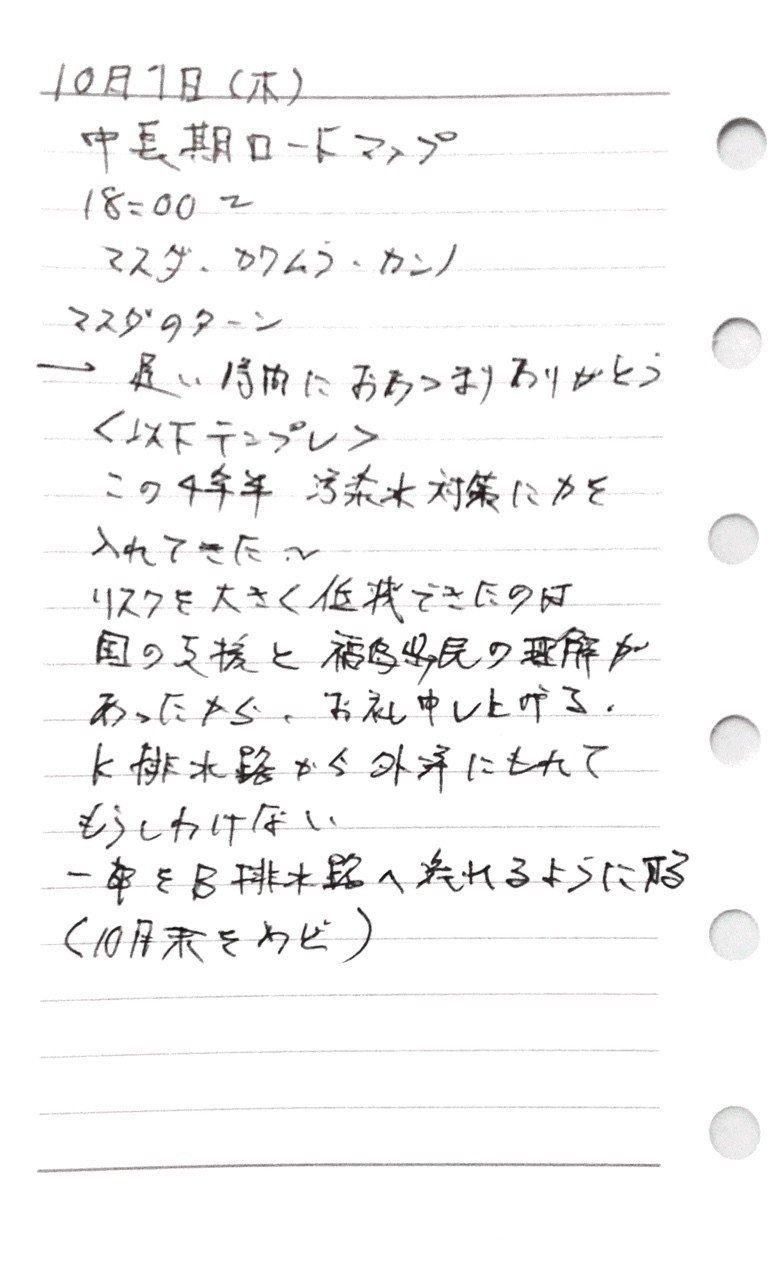 10月1日(木)
中長期ロードマップ
18:00〜
マスダ、カワムラ・カンノ
マスダのターン
→ 遅い時間におあつまりありがとう
<以下テンプレ>
この4年半 汚染水対策に力を
入れてきた〜
リスクを大きく低減できたのは
国の支援と福島県民の理解が
あったから、お礼申し上げる。
K排水路から外洋にもれて
もうしわけない
一部をB排水路へ流れるように
(10月末をめど)